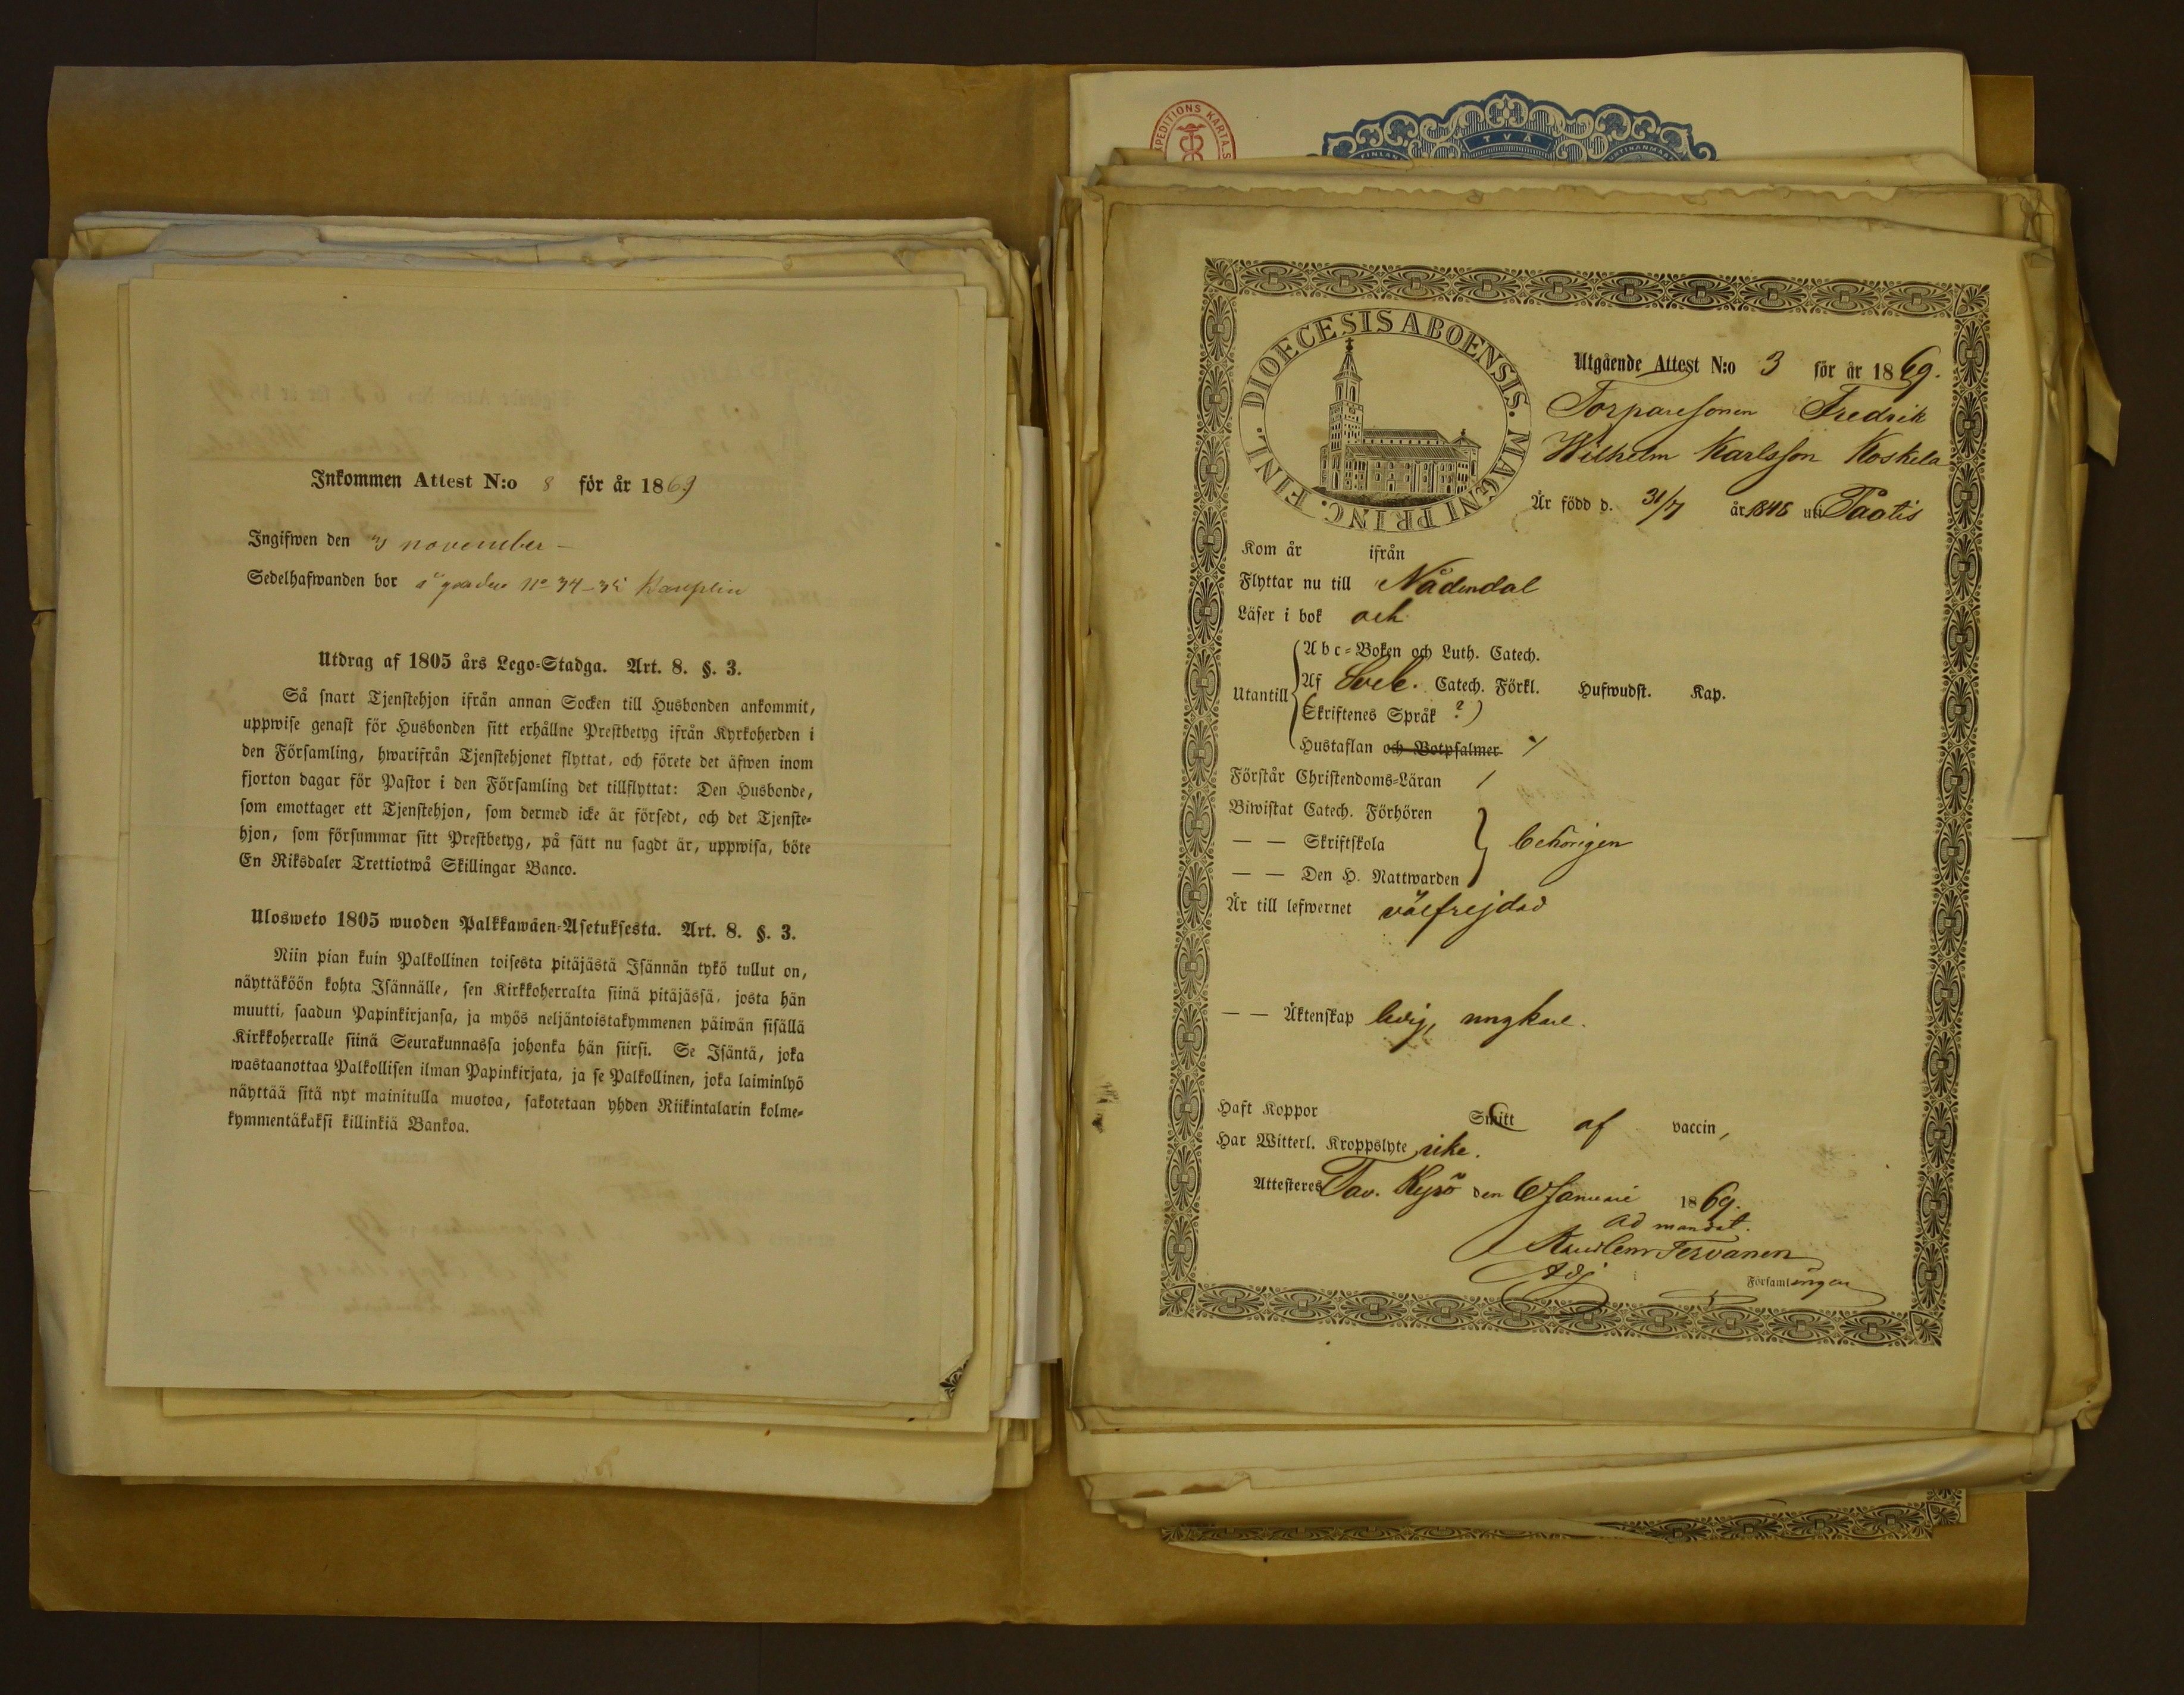 Inkommen Attest N:o 8 för år 1869
Ingifwen den november
Sedelhafwanden bor å No 34-35
Utdrag af 1805 års Lego-Stadga. Art. 8. §. 3.
Så snart Tjenstehjon ifrån annan Socken till Husbonden ankommit,
uppwise genast för Husbonden sitt erhållne Prestbetyg ifrån Kyrkoherden i
den Församling, hwarifrån Tjenstehjonet flyttat, och förete det äfwen inom
fjorton dagar för Pastor i den Församling det tillflyttat: Den Husbonde,
som emottager ett Tjenstehjon, som dermed icke är försedt, och det Tjenste-
hjon, som försummar sitt Prestbetyg, på sätt nu sagdt är, uppwisa, böte
En Riksdaler Trettiotwå Skillingar Banco.
Ulosweto 1805 wuoden Palkkawäen-Asetuksesta. Art. 8. §. 3.
Niin pian kuin Palkollinen toisesta pitäjästä Isännän tykö tullut on,
näyttäköön kohta Isännälle, sen Kirkkoherralta siinä pitäjässä, josta hän
muutti, saadun Papinkirjansa, ja myös neljäntoistakymmenen päiwän sisällä
Kirkkoherralle siinä Seurakunnassa johonka hän siirsi. Se Isäntä, joka
wastaanottaa Palkollisen ilman Papinkirjata, ja se Palkollinen, joka laiminlyö
näyttää sitä nyt mainitulla muotoa, sakotetaan yhden Riikintalarin kolme-
kymmentäkaksi killinkiä Bankoa.
EXPEDITIONS KARTA.S
TVÅ
FINLAN
DIOECESIS ABOENSIS. MAGNI PRINC. FINL.
Utgående Attest N:o 3 för år 1869.
Torparesonen Fredrik
Wilhelm Karlsson Koskela
Är född d. 31/7 år 1846 uti Paatis
Kom år ifrån
Flyttar nu till Nådendal
Läser i bok och
Utantill
Abc-Boken och Luth. Catech.
Af Sveb. Catech. Förkl. Hufwudst. Kap.
(Skriftenes Språk ?)
Hustaflan och Botpsalmer
Förstår Christendoms-Läran
Biwistat Catech. Förhören
— — Skriftskola behörigen
— — Den H. Nattwarden
Är till lefwernet välfrejdad
— — Äktenskap ledig, ungkarl.
Haft Koppor Smitt af vaccin,
Har Witterl. Kroppslyte icke.
Attesteres Tav. Kyrö den 6 Januari 1869.
ad mandat.
Tervanen
Adj
Församlingen